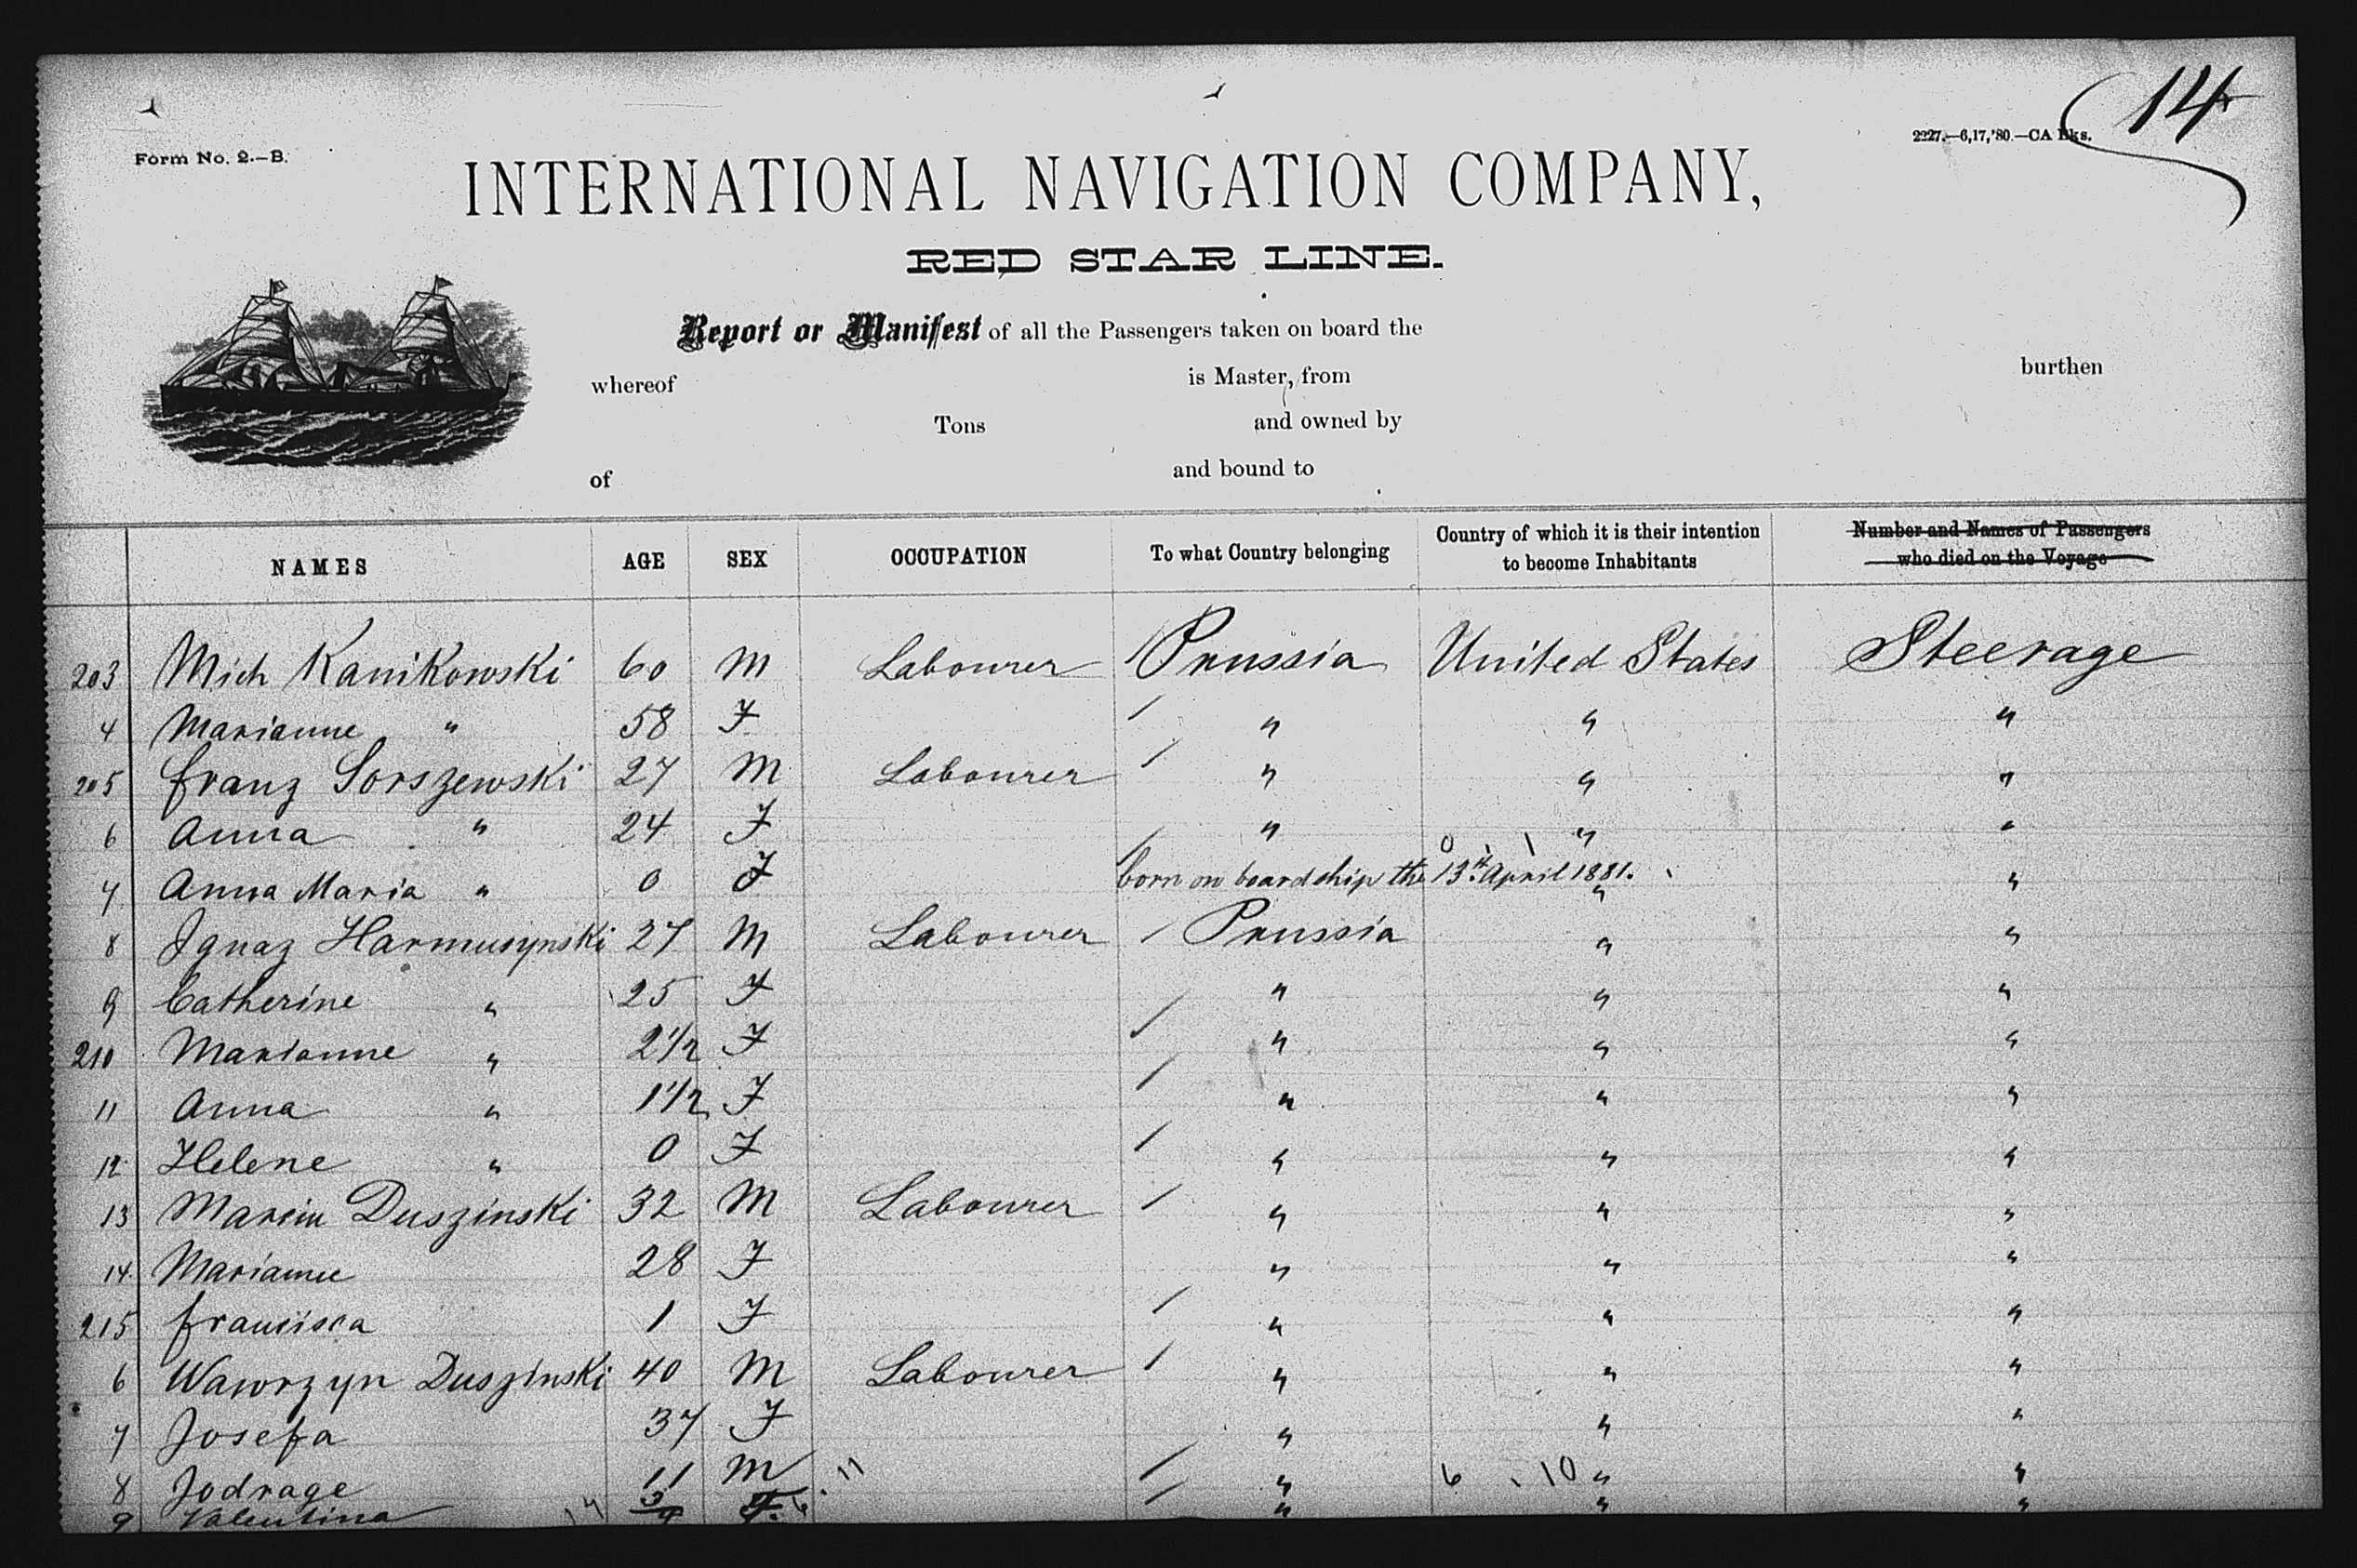 14
Form No. 2.—B.
2227.—6,17,'80.—CA Bks.
INTERNATIONAL NAVIGATION COMPANY,
RED STAR LINE.
Report or Manifest of all the Passengers taken on board the
whereof is Master, from burthen
Tons and owned by
of and bound to
NAMES AGE SEX OCCUPATION To what Country belonging Country of which it is their intention to become Inhabitants Number and Names of Passengers who died on the Voyage
203 Mich Kanikowski 60 M Labourer / Prussia United States Steerage
4 Marianne " 58 F / " " "
205 Franz Sorszewski 27 M Labourer / " " "
6 Anna " 24 F " " "
7 Anna Maria " 0 F born on board ship the 13th April 1881. " "
8 Ignaz Harmusynski 27 M Labourer / Prussia " "
9 Catherine " 25 F " " "
210 Marianne " 2 1/2 F / " " "
11 Anna " 1 1/2 F / " " "
12 Helene " 0 F / " " "
13 Marcin Duszinski 32 M Labourer / " " "
14 Marianne 28 F " " "
215 Francisca 1 F / " " "
6 Wawrzyn Duszinski 40 M Labourer / " " "
7 Josefa 37 F " " "
8 Jodrage 11 M 11 / " 6 10 " "
9 Valentina F / " " "